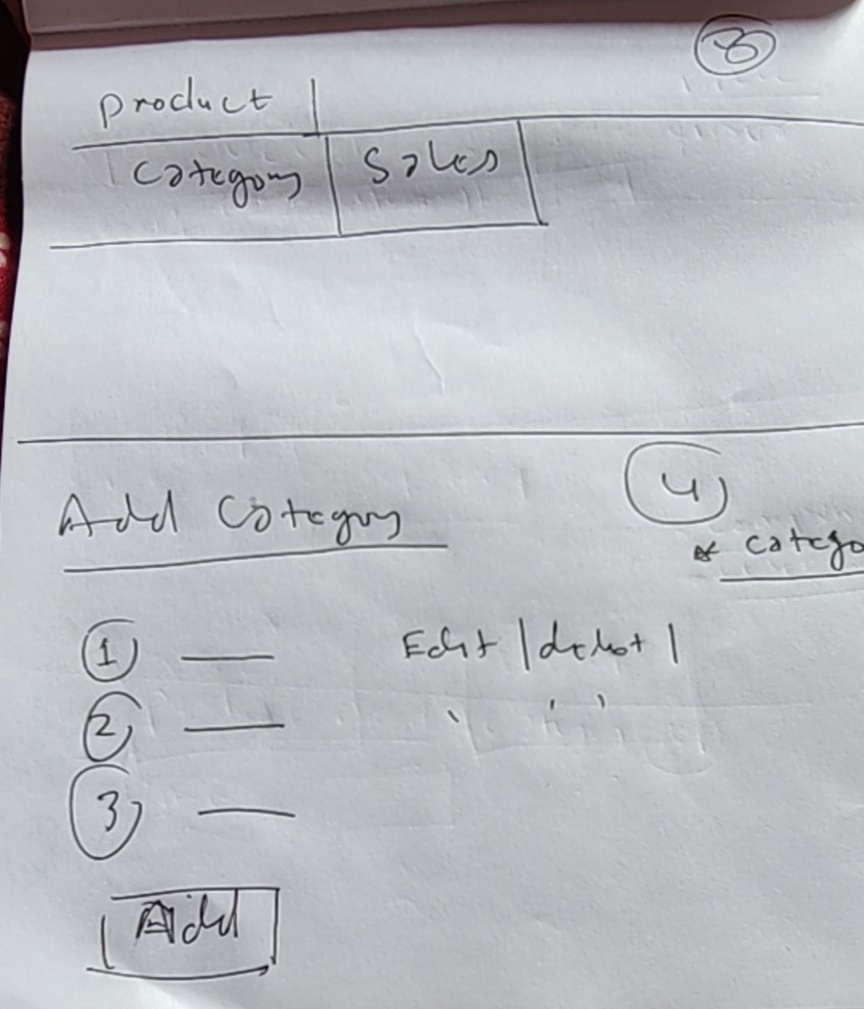 3
product
Category Sales
Add Category
4
* catego
1 Edit | delet |
2
3
Add